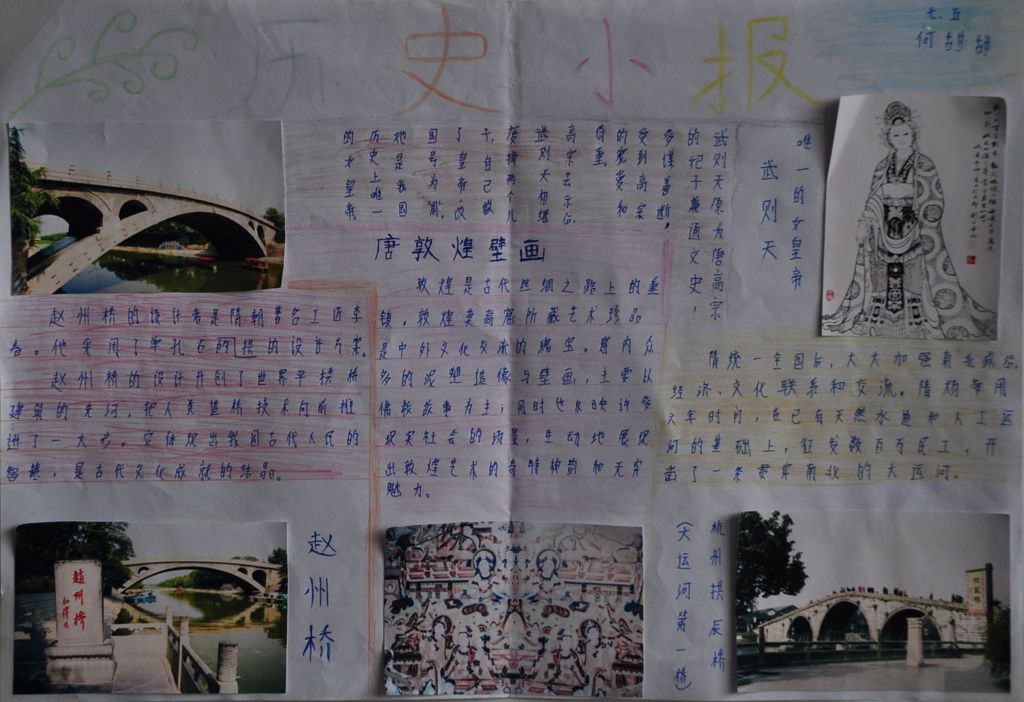 历史小报
七、五
何甜甜
唯一的女皇帝
武则天
武则天原为唐高宗
的妃子兼通文史，
多谋善断，
受到高宗
的宠爱和
倚重。
高宗去示后，
武则天相继
废掉两个儿
子，自己做
了皇帝，改
国号为“周”，
她是我国
历史上唯一
的女皇帝
唐敦煌壁画
敦煌是古代丝绸之路上的重
镇，敦煌莫高窟所藏艺术珍品
是中外文化交流的瑰宝。窟内众
多的泥塑造像与壁画，主要以
佛教故事为主，同时也反映许多
现实社会的场景，生动地展现
出敦煌艺术的奇特神韵和无穷
魅力。
赵州桥的设计者是隋朝著名工匠李
春。他采用了单孔石的拱的设计方案。
赵州桥的设计开创了世界平拱桥
建筑的先河，把人类造桥技术向前推
进了一大步。它体现出我国古代人民的
智慧，是古代文化成就的结晶。
隋统一全国后，大大加强南北政治、
经济、文化联系和交流。隋炀帝用
六年时间，在已有天然水道和人工运
河的基础上，征发数百万民工，开
凿了一条贯穿南北的大运河。
赵州桥
赵州桥
杭州拱辰桥
（大运河第一桥）